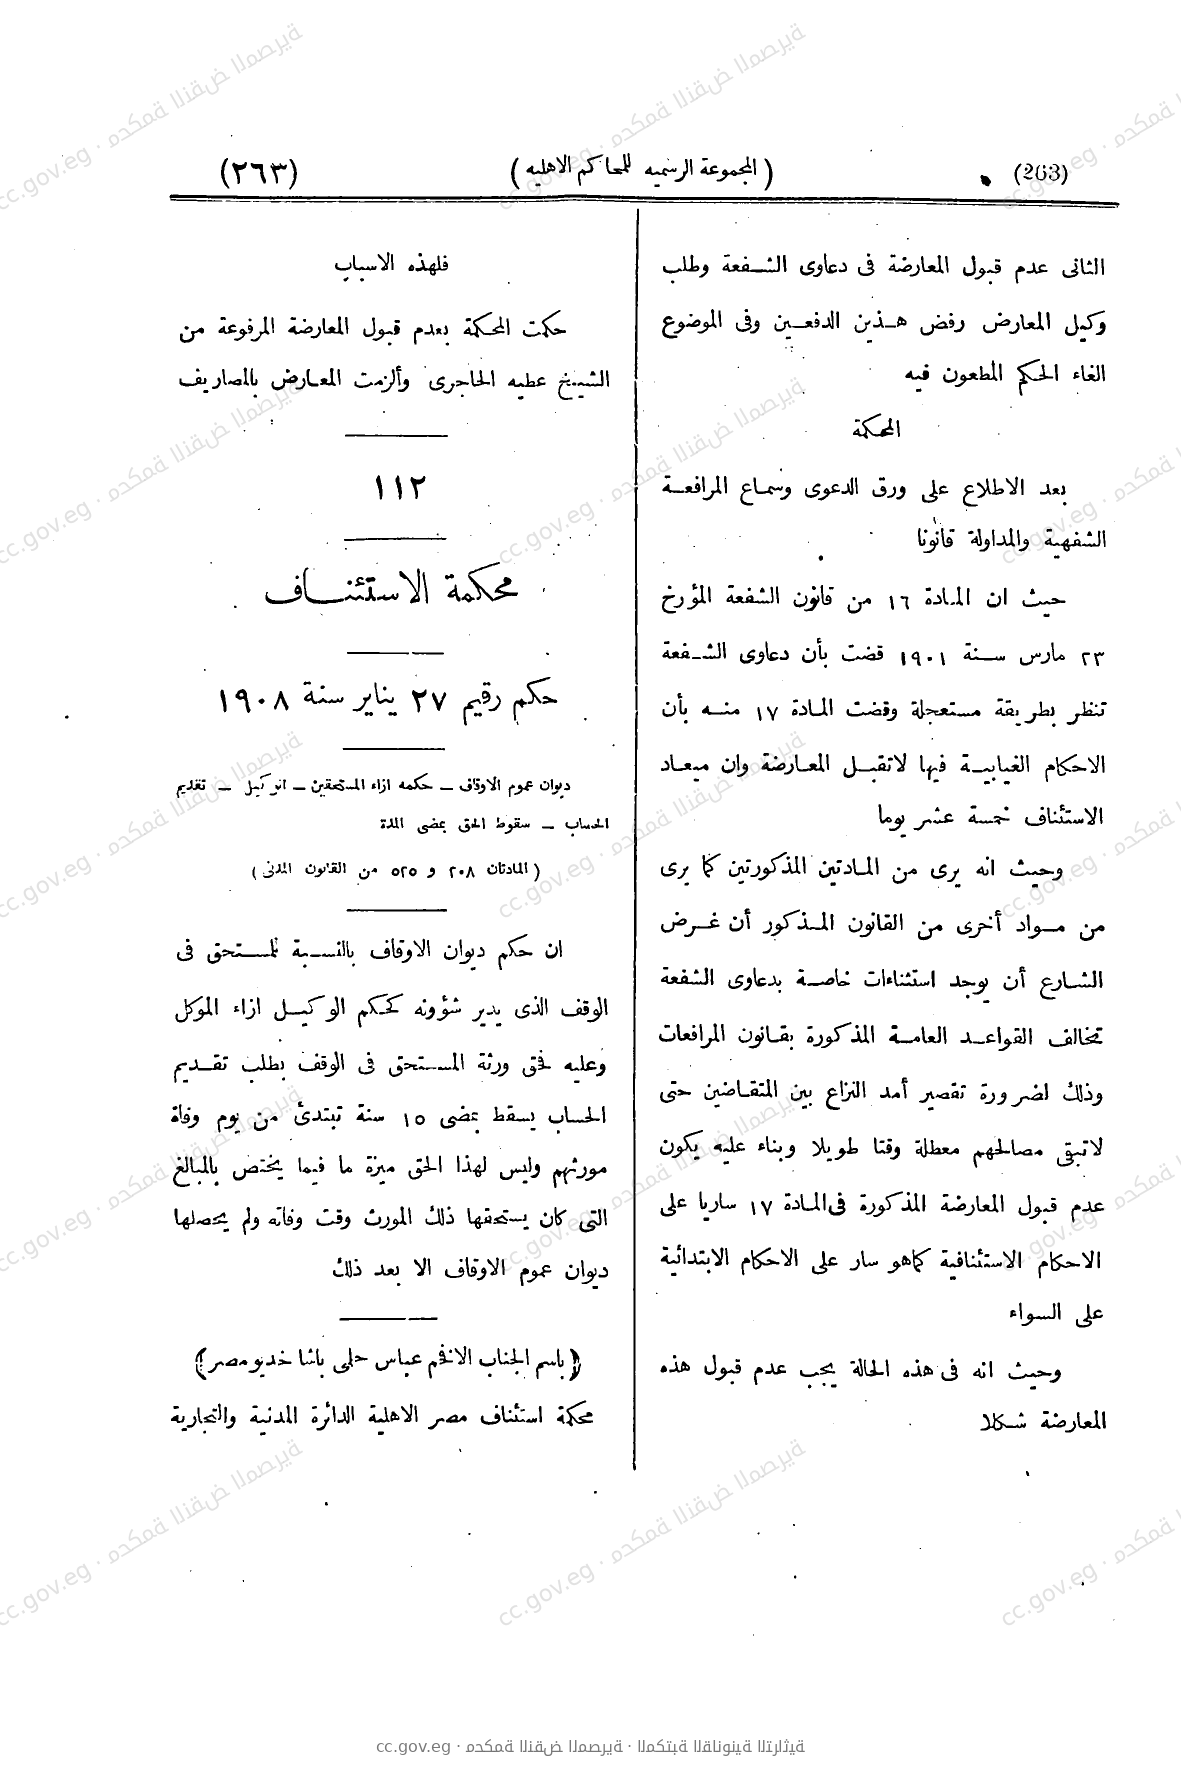 (263)
(المجموعة الرسميه للمحاكم الاهليه)
(٢٦٣)
الثانى عدم قبول المعارضة فى دعاوى الشفعة وطلب
وكيل المعارض رفض هذين الدفعين وفى الموضوع
الغاء الحكم المطعون فيه
المحكمة
بعد الاطلاع على ورق الدعوى وسماع المرافعة
الشفهية والمداولة قانونا
حيث ان المادة ١٦ من قانون الشفعة المؤرخ
٢٣ مارس سنة ١٩٠١ قضت بأن دعاوى الشفعة
تنظر بطريقة مستعجلة وقضت المادة ١٧ منه بأن
الاحكام الغيابية فيها لاتقبل المعارضة وان ميعاد
الاستئناف خمسة عشر يوما
وحيث انه يرى من المادتين المذكورتين كما يرى
من مواد أخرى من القانون المذكور أن غرض
الشارع أن يوجد استثناءات خاصة بدعاوى الشفعة
تخالف القواعد العامة المذكورة بقانون المرافعات
وذلك لضرورة تقصير أمد النزاع بين المتقاضين حتى
لاتبقى مصالحهم معطلة وقتا طويلا وبناء عليه يكون
عدم قبول المعارضة المذكورة فى المادة ١٧ ساريا على
الاحكام الاستئنافية كماهو سار على الاحكام الابتدائية
على السواء
وحيث انه فى هذه الحالة يجب عدم قبول هذه
المعارضة شكلا
فلهذه الاسباب
حكمت المحكمة بعدم قبول المعارضة المرفوعة من
الشيخ عطيه الحاجرى وألزمت المعارض بالمصاريف
١١٢
محكمة الاستئناف
حكم رقيم ٢٧ يناير سنة ١٩٠٨
ديوان عموم الاوقاف ــ حكمه ازاء المستحقين ــ التوكيل ــ تقديم
الحساب ــ سقوط الحق بمضى المدة
(المادتان ٢٠٨ و ٥٢٥ من القانون المدنى)
ان حكم ديوان الاوقاف بالنسبة للمستحق فى
الوقف الذى يدير شؤونه كحكم الوكيل ازاء الموكل
وعليه فحق ورثة المستحق فى الوقف بطلب تقديم
الحساب يسقط بمضى ١٥ سنة تبتدئ من يوم وفاة
مورثهم وليس لهذا الحق ميزة ما فيما يختص بالمبالغ
التى كان يستحقها ذلك المورث وقت وفاته ولم يحصلها
ديوان عموم الاوقاف الا بعد ذلك
(باسم الجناب الافخم عباس حلمى باشا خديو مصر)
محكمة استئناف مصر الاهلية الدائرة المدنية والتجارية
cc.gov.eg · محكمة النقض المصرية · المكتبة القانونية التراثية